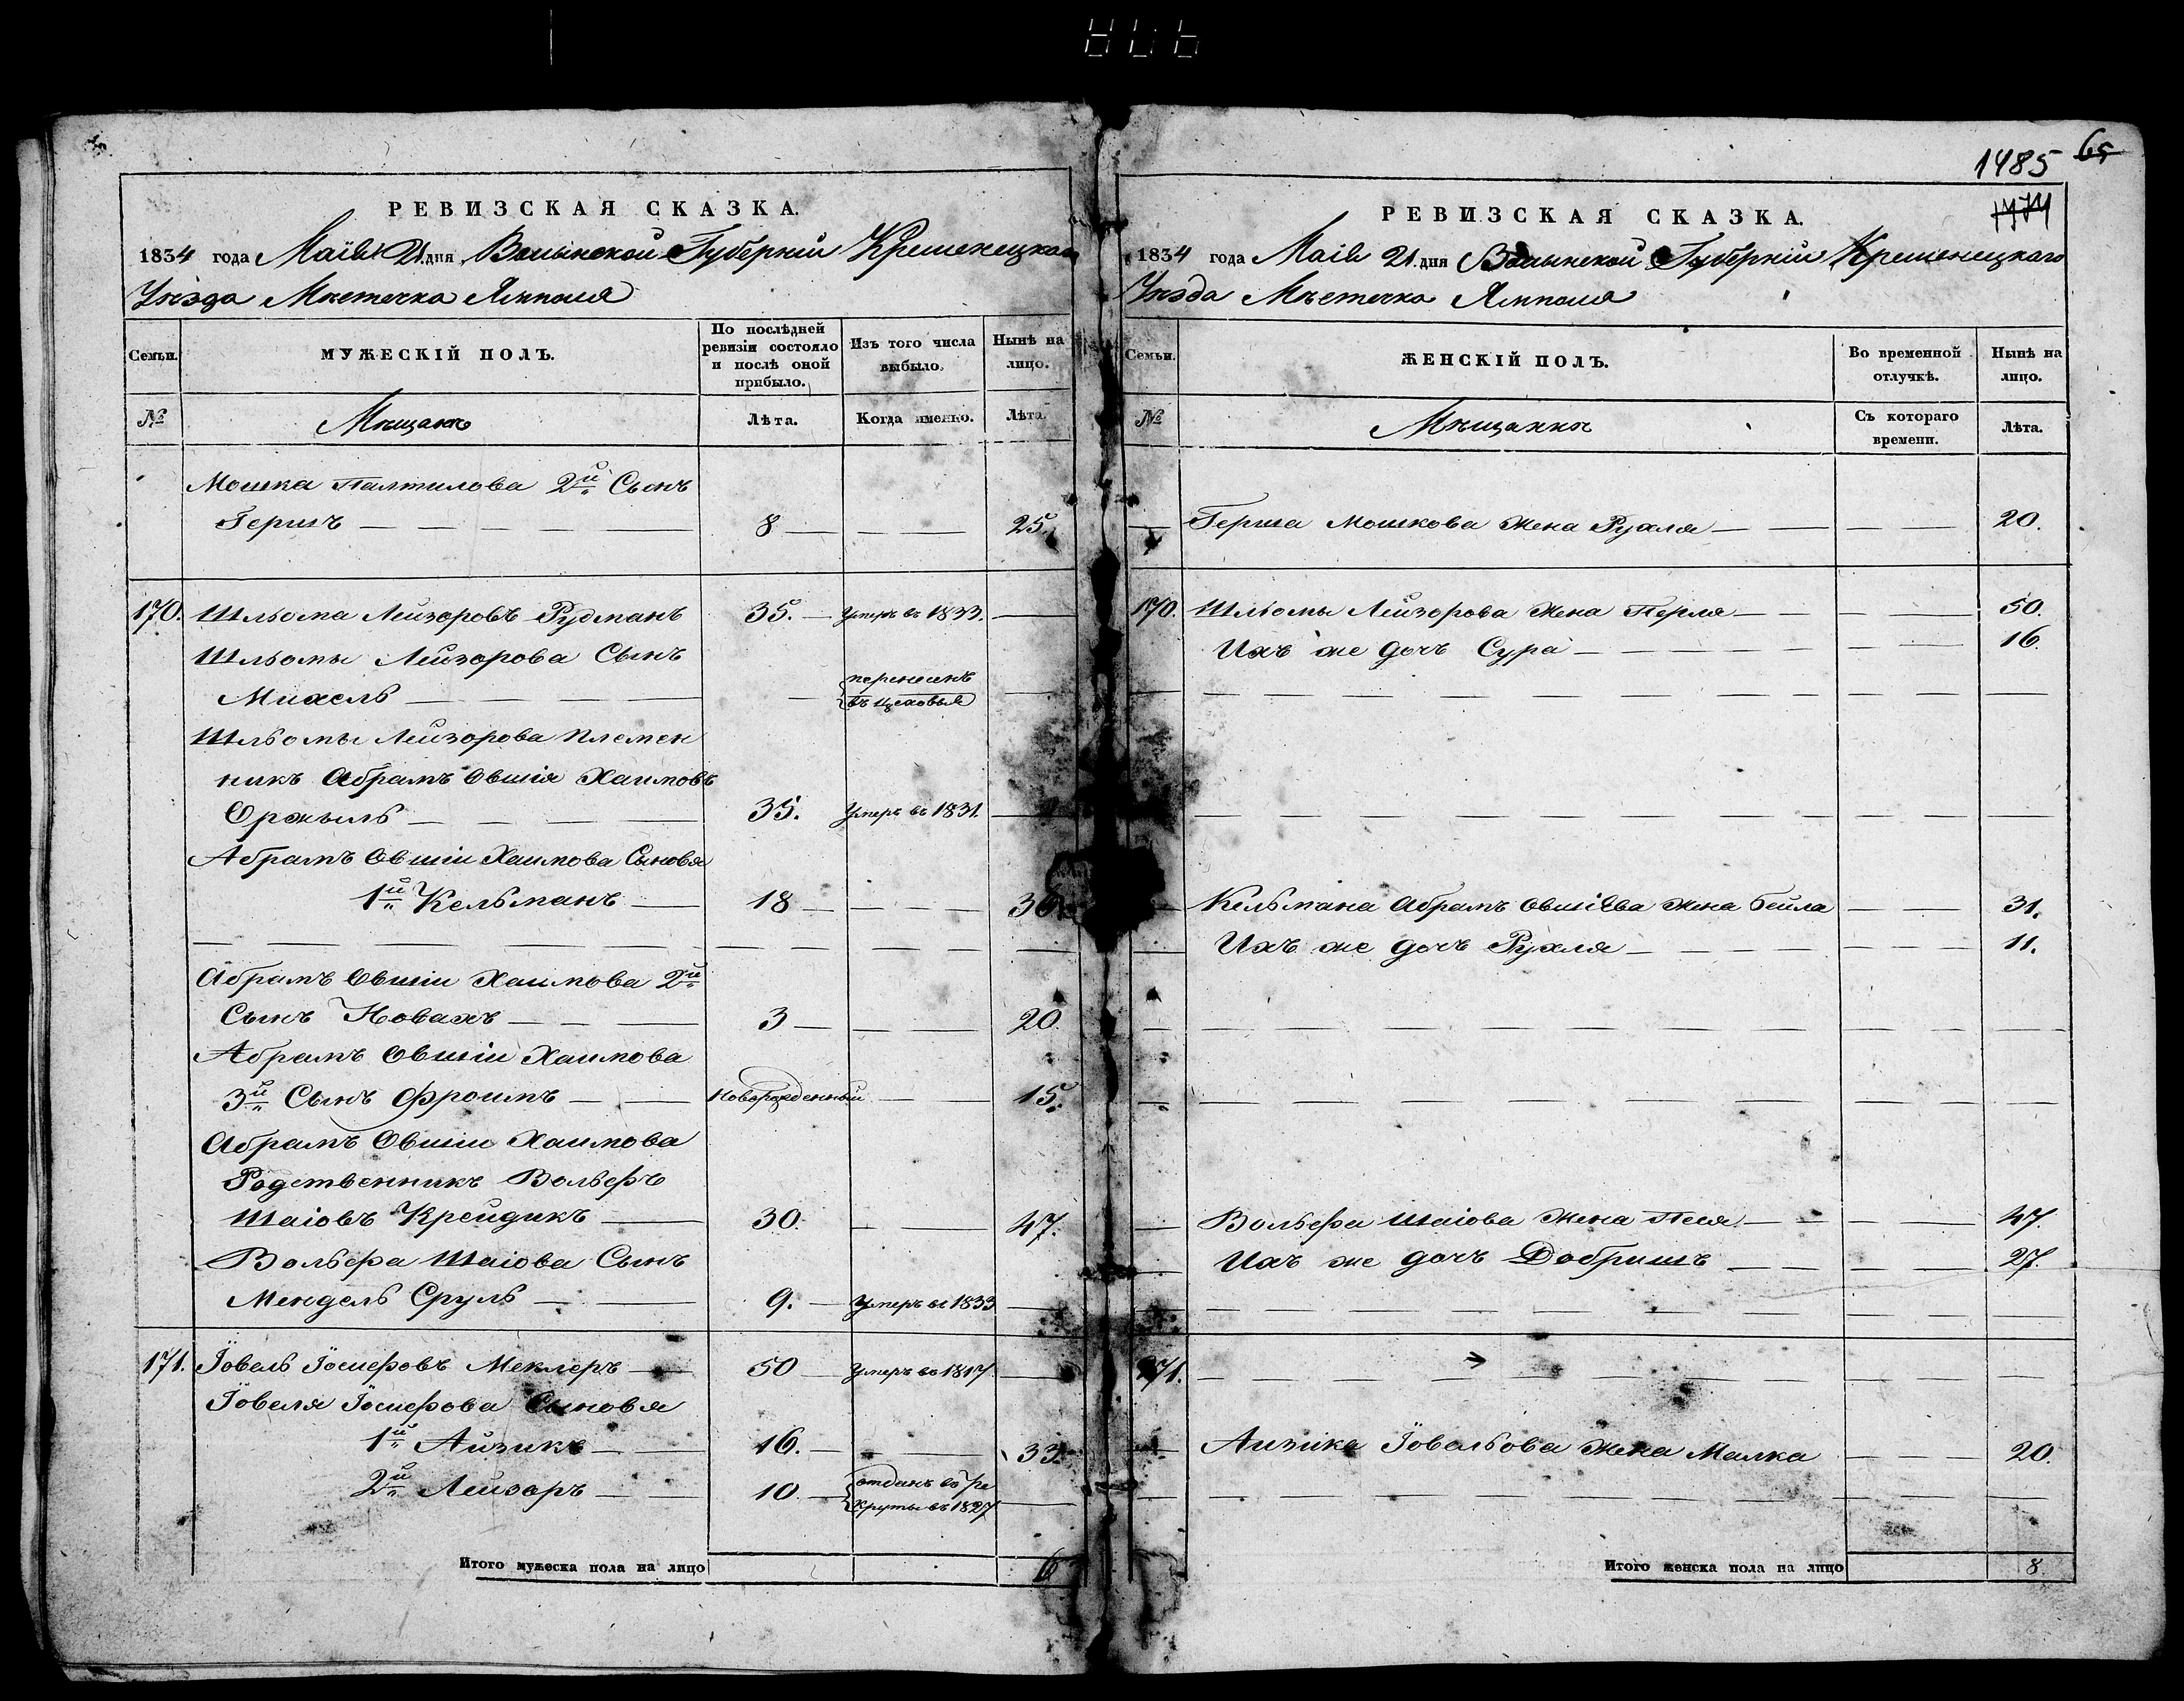 1485 65
1774
РЕВИЗСКАЯ СКАЗКА.
1834 года Маія 21 дня Волынской Губерніи Кременецкаго
Уѣзда Мѣстечка Ямполя
Семьи.
МУЖЕСКІЙ ПОЛЪ.
По послѣдней ревизіи состояло и послѣ оной прибыло.
Изъ того числа выбыло.
Нынѣ на лицо.
№
Мѣщанѣ
Лѣта.
Когда именно.
Лѣта.
Мошка Палтилова 2й Сынъ
Гершъ 8 25.
170. Шльома Лейзоровъ Рудманъ 35. Умеръ въ 1833.
Шльомы Лейзорова Сынъ
Михель перенесенъ
въ цеховыя
Шльомы Лейзорова племен
никъ Абрамъ Овшія Хаимовъ
Оржыль 35. Умеръ въ 1831.
Абрамъ Овшіи Хаимова Сыновя
1й Кельманъ 18 36
Абрамъ Овшіи Хаимова 2й
Сынъ Новахъ 3 20.
Абрамъ Овшіи Хаимова
3й Сынъ Фроимъ новорожденный 15.
Абрамъ Овшіи Хаимова
Родственникъ Вольфъ
Шаіовъ Крейдикъ 30. 47.
Вольфа Шаіова Сынъ
Мендель Сруль 9. Умеръ въ 1833
171. Іовель Іосифовъ Меклеръ 50 Умеръ въ 1817.
Іовеля Іосифова Сыновя
1й Айзикъ 16. 33.
2й Лейзоръ 10. отданъ въ ре
круты въ 1827
Итого мужеска пола на лицо 6
РЕВИЗСКАЯ СКАЗКА.
1834 года Маія 21 дня Волынской Губерніи Кременецкаго
Уѣзда Мѣстечка Ямполя
Семьи.
ЖЕНСКІЙ ПОЛЪ.
Во временной отлучкѣ.
Нынѣ на лицо.
№
Мѣщанки
Съ котораго времени.
Лѣта.
Герша Мошкова жена Рухля 20.
170. Шльомы Лейзорова жена Перля 50.
Ихъ же дочъ Сура 16.
Кельмана Абрамъ Овшіева жена Бейла 31.
Ихъ же дочъ Рухля 11.
Вольфа Шаіова жена Песя 47.
Ихъ же дочъ Добришъ 27.
171.
Айзика Іовельова жена Малка 20.
Итого женска пола на лицо 8